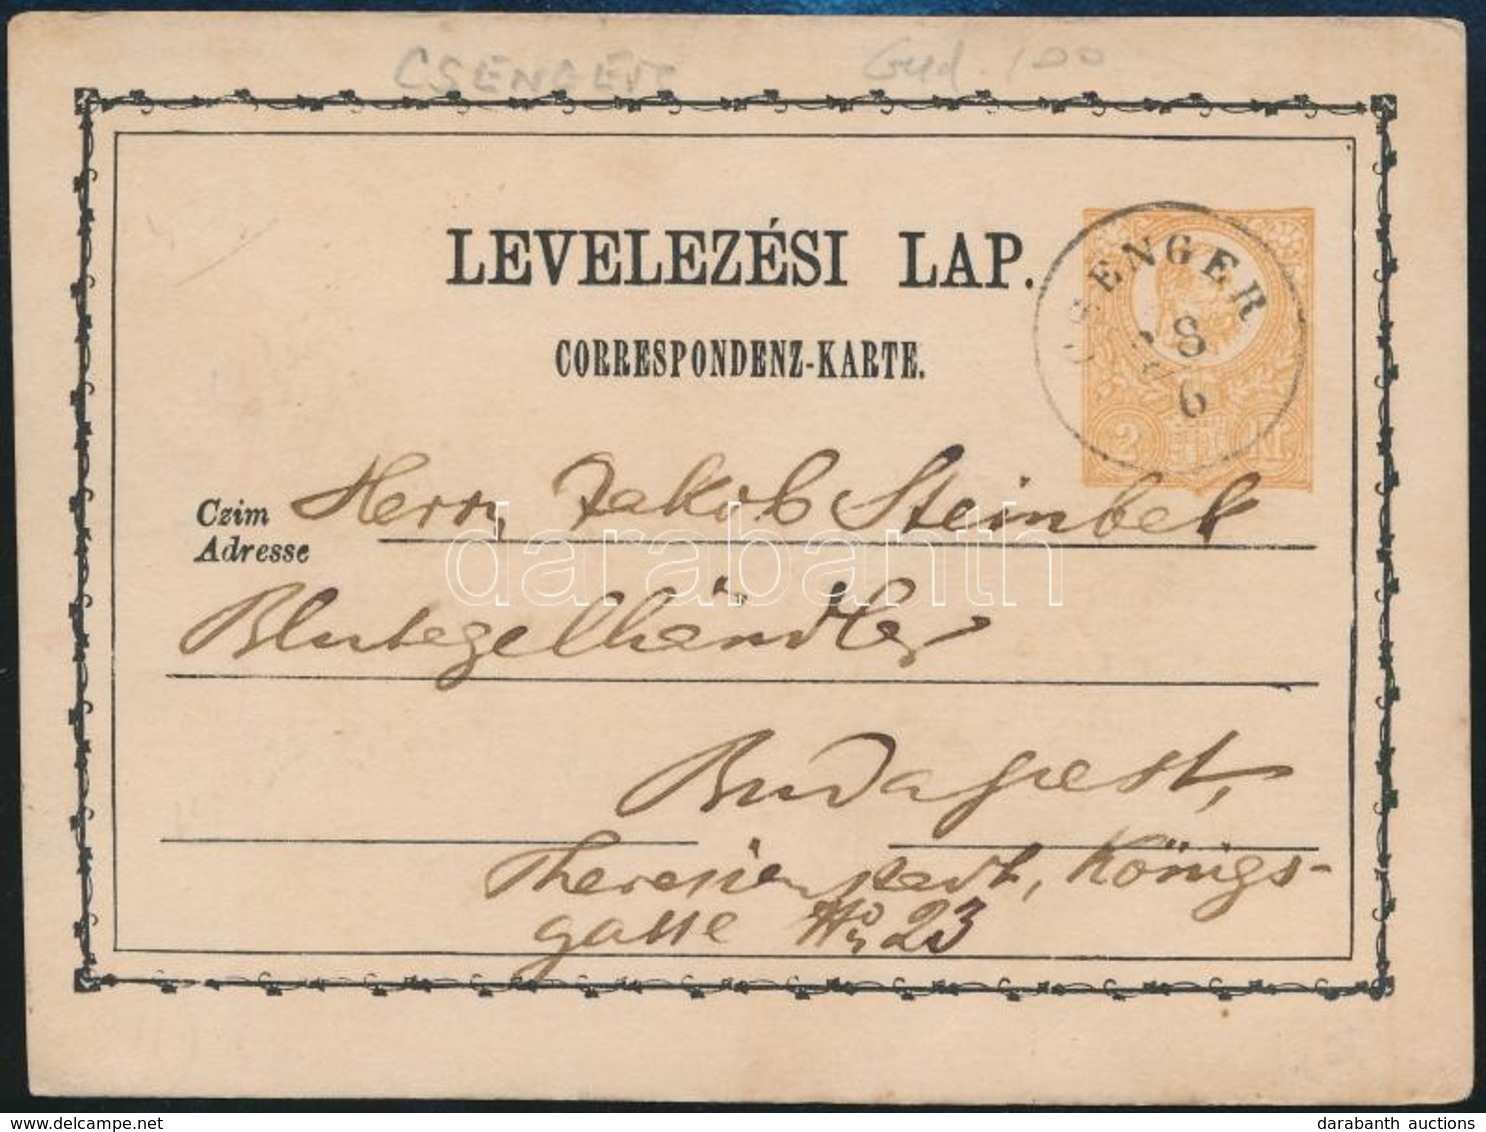 CSENGER Gud. 100
LEVELEZÉSI LAP.
CORRESPONDENZ-KARTE.
CSENGER
8
6
2 kr.
Czim
Adresse
Herrn Jakob Steinbek
Blutegelhändler
Budapest,
Theresienstadt, Königs-
gasse No 23
darabanth
darabanth auctions